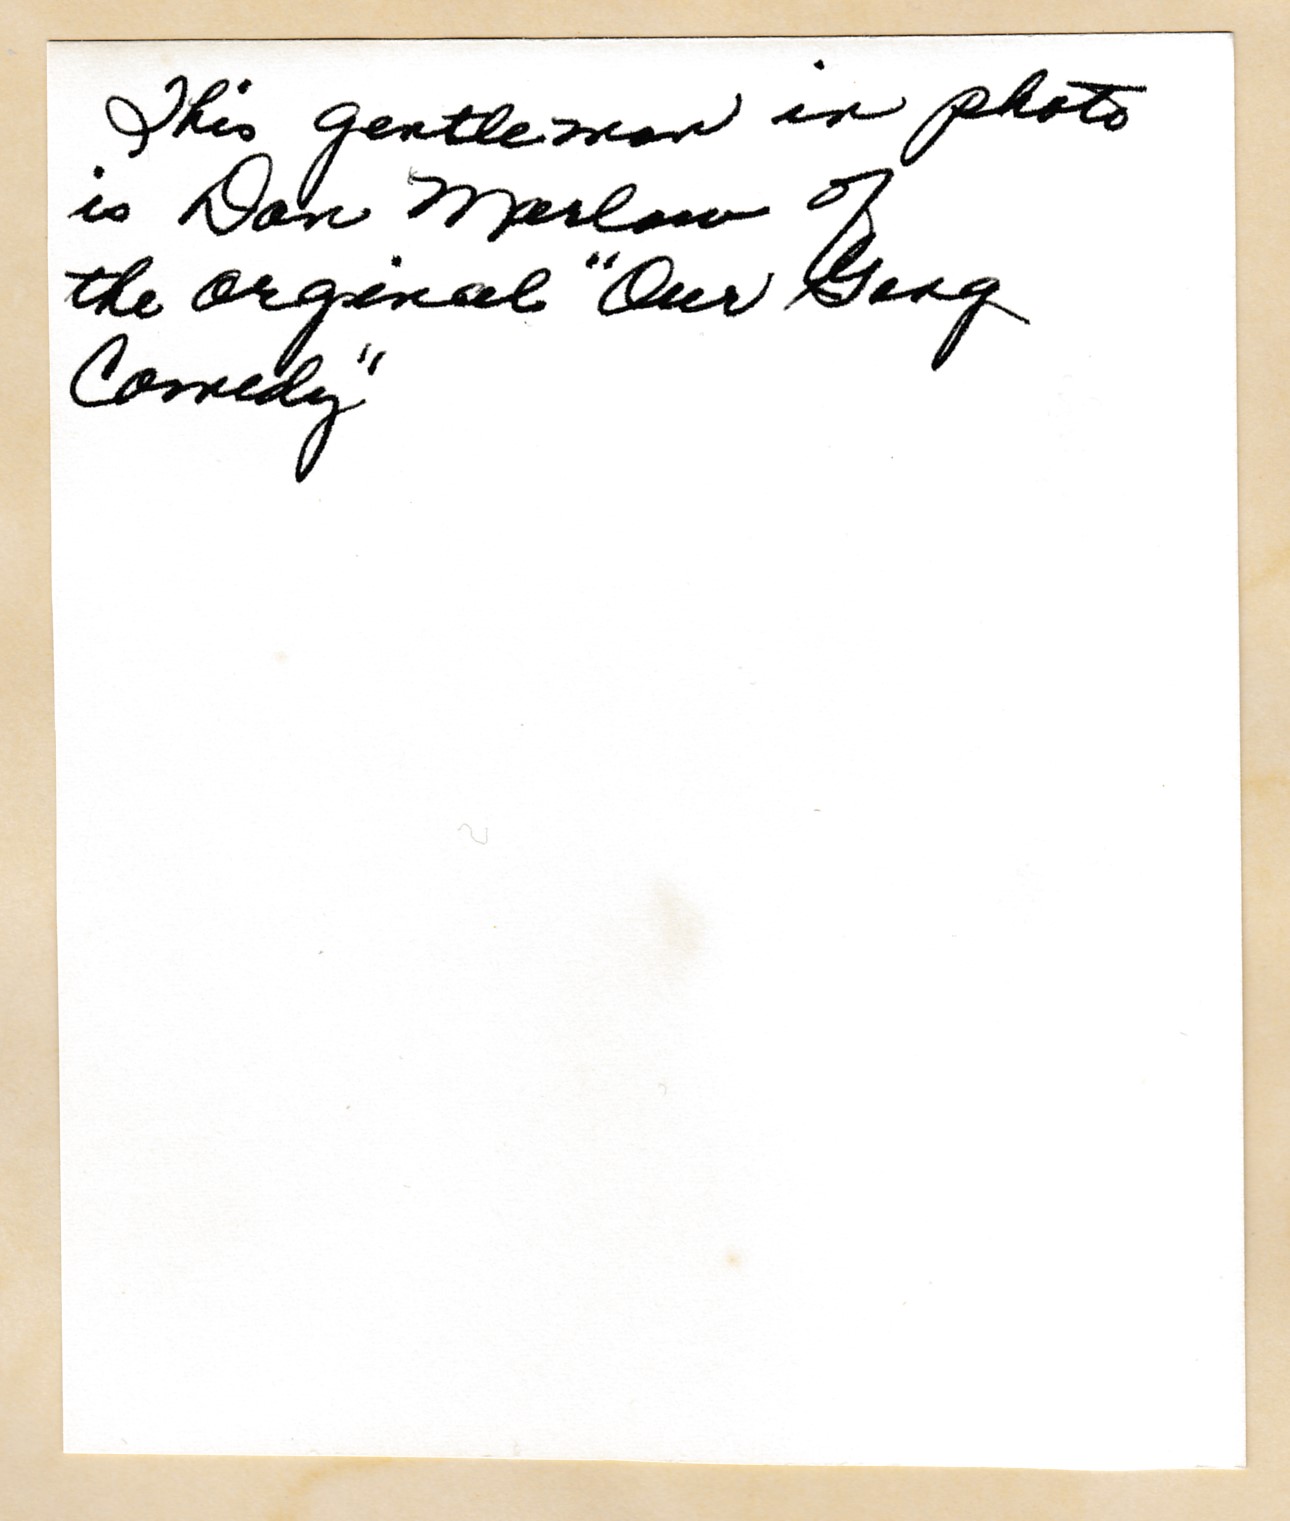 This gentleman in photo
is Don Marlow of
the orginal "Our Gang
Comedy"